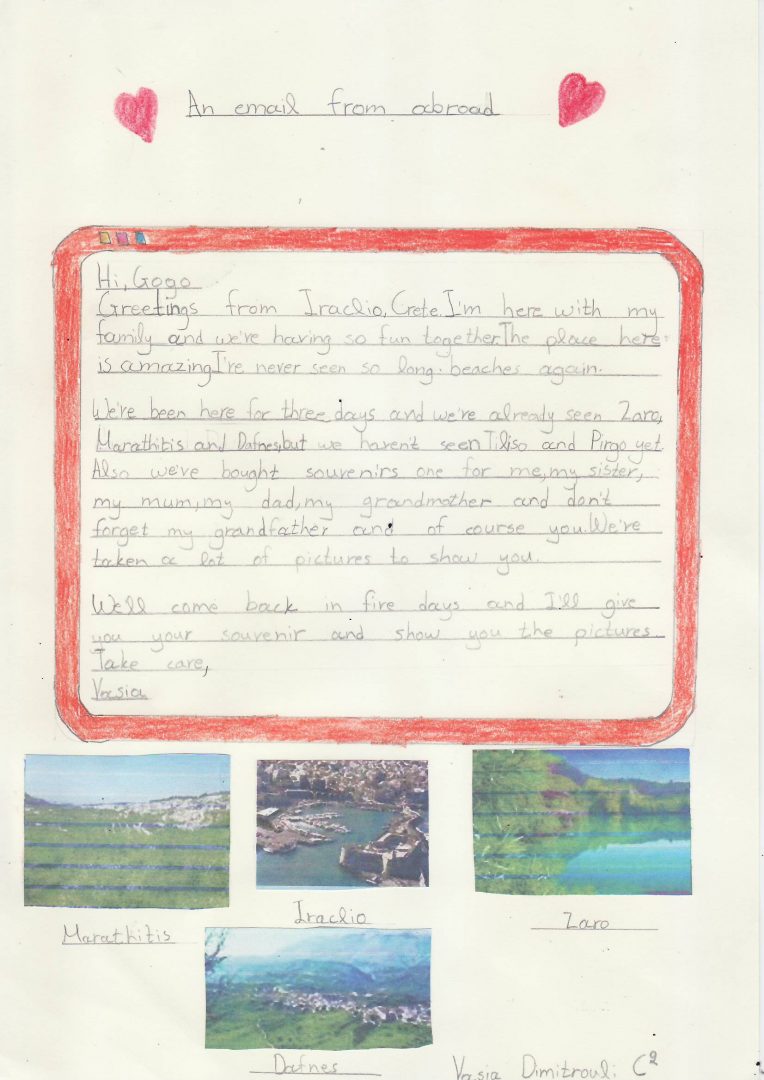 An email from abroad
Hi, Gogo
Greetings from Iraclio, Crete. I'm here with my
family and we're having so fun together. The place here
is amazing I're never seen so long beaches again.
We're been here for three days and we're already seen Zaro,
Marathitis and Dafnes, but we haven't seen Tiliso and Pirgo yet.
Also we've bought souvenirs one for me, my sister,
my mum, my dad, my grandmother and don't
forget my grandfather and of course you. We're
taken a lot of pictures to show you.
We'll come back in five days and I'll give
you your souvenir and show you the pictures.
Take care,
Vasia
Marathitis
Iraclio
Zaro
Dafnes
Vasia Dimitrouli C2